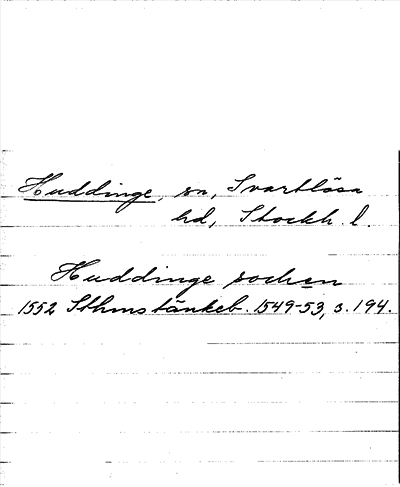 Huddinge, sn, Svartlösa
hd, Stockh. l.
Huddinge sochen
1552 Sthms tänkeb. 1549-53, s. 194.